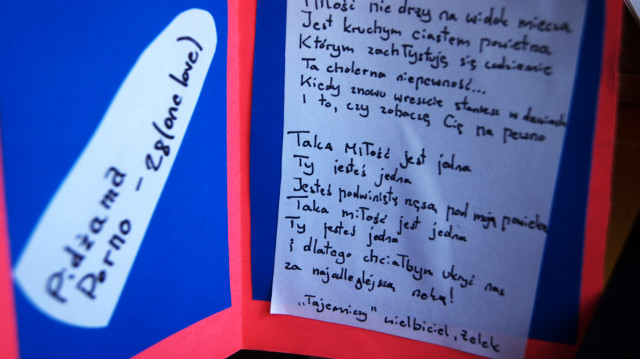 Pidżama
Porno - 28 (one love)
Miłość nie drży na widok miecza
Jest kruchym ciastem powietrza
Którym zachłystuję się codziennie
Ta cholerna niepewność...
Kiedy znowu wreszcie staniesz w drzwiach
I to, czy zobaczę Cię na pewno
Taka miłość jest jedna
Ty jesteś jedna
Jesteś podwiniętą rzęsą pod moją powieką
Taka miłość jest jedna
Ty jesteś jedna
i dlatego chciałbym ukryć nas
za najodleglejszą rzeką!
„Tajemniczy" wielbiciel, Żelek